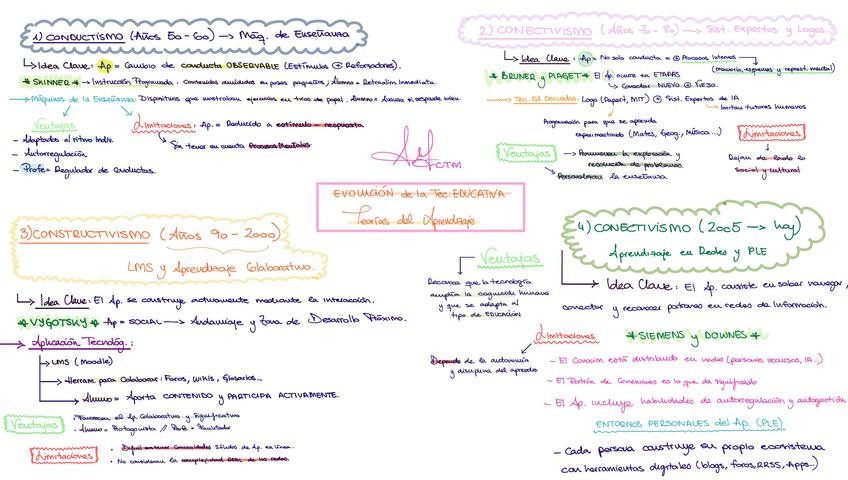 1) CONDUCTISMO (Años 50-60) → Máq. de Enseñanza
↳ Idea Clave: Ap = Cambio de conducta OBSERVABLE (Estímulos ⊕ Reforzadores).
* SKINNER * → Instrucción Programada: Contenidos divididos en pasos pequeños; Alumno = Retroalim. Inmediata.
→ Máquinas de la Enseñanza: Dispositivos que mostraban ejercicios en tiras de papel. Alumno = Avanza si responde bien.
Ventajas
- Adaptados al ritmo Indiv.
- Autorregulación
- Profe = Regulador de conductas.
Limitaciones: Ap. = Reducido a estímulo - respuesta
↳ Sin tener en cuenta Procesos Mentales
2) CONECTIVISMO (Años 70-80) → Sist. Expertos y Logos
↳ Idea Clave: Ap = No solo conducta = ⊕ Procesos Internos
(Memoria, esquemas y represent. mental)
* BRUNER y PIAGET * El Ap. ocurre en ETAPAS
↳ Conectar NUEVO ⊕ VIEJO.
→ Tec. Ed. Derivadas: Logo (Papert, MIT) ⊕ Sist. Expertos de IA
↳ Imitan tutores humanos
Programación para que se aprenda
experimentando (Mates, Geog., Música...)
Ventajas
→ Aumentan la exploración y
resolución de problemas.
→ Personalizan la enseñanza.
Limitaciones
Dejan de lado lo
social y cultural
CTM
EVOLUCIÓN de la Tec. EDUCATIVA
Teorías del Aprendizaje
3) CONSTRUCTIVISMO (Años 90-2000)
LMS y Aprendizaje Colaborativo.
↳ Idea Clave: El Ap. se construye activamente mediante la interacción.
* VYGOTSKY * Ap = SOCIAL → Andamiaje y Zona de Desarrollo Próximo.
→ Aplicación Tecnológ.:
→ LMS (Moodle)
→ Herram. para Colaborar: Foros, Wikis, Glosarios...
→ Alumno = Aporta CONTENIDO y PARTICIPA ACTIVAMENTE.
Ventajas
· Favorecen el Ap. Colaborativo y Significativo
· Alumno = Protagonista // Profe = Facilitador
Limitaciones
· Difícil sostener Comunidades Sólidas de Ap. en línea.
· No consideran la complejidad REAL de las redes.
4) CONECTIVISMO (2005 → hoy)
Aprendizaje en Redes y PLE
↳ Idea Clave: El Ap. consiste en saber navegar,
conectar y reconocer patrones en redes de información.
Ventajas
Reconoce que la tecnología
amplía la cognición humana
y que se adapta al
tipo de EDUCACIÓN
Limitaciones
Depende de la autonomía
y disciplina del aprendiz
* SIEMENS y DOWNES *
- El Conocim. está distribuido en nodos (personas, recursos, IA...)
- El Patrón de Conexiones es lo que da significado
- El Ap. incluye habilidades de autorregulación y autogestión.
ENTORNOS PERSONALES del Ap. (PLE)
- Cada persona construye su propio ecosistema
con herramientas digitales (blogs, foros, RRSS, Apps...)